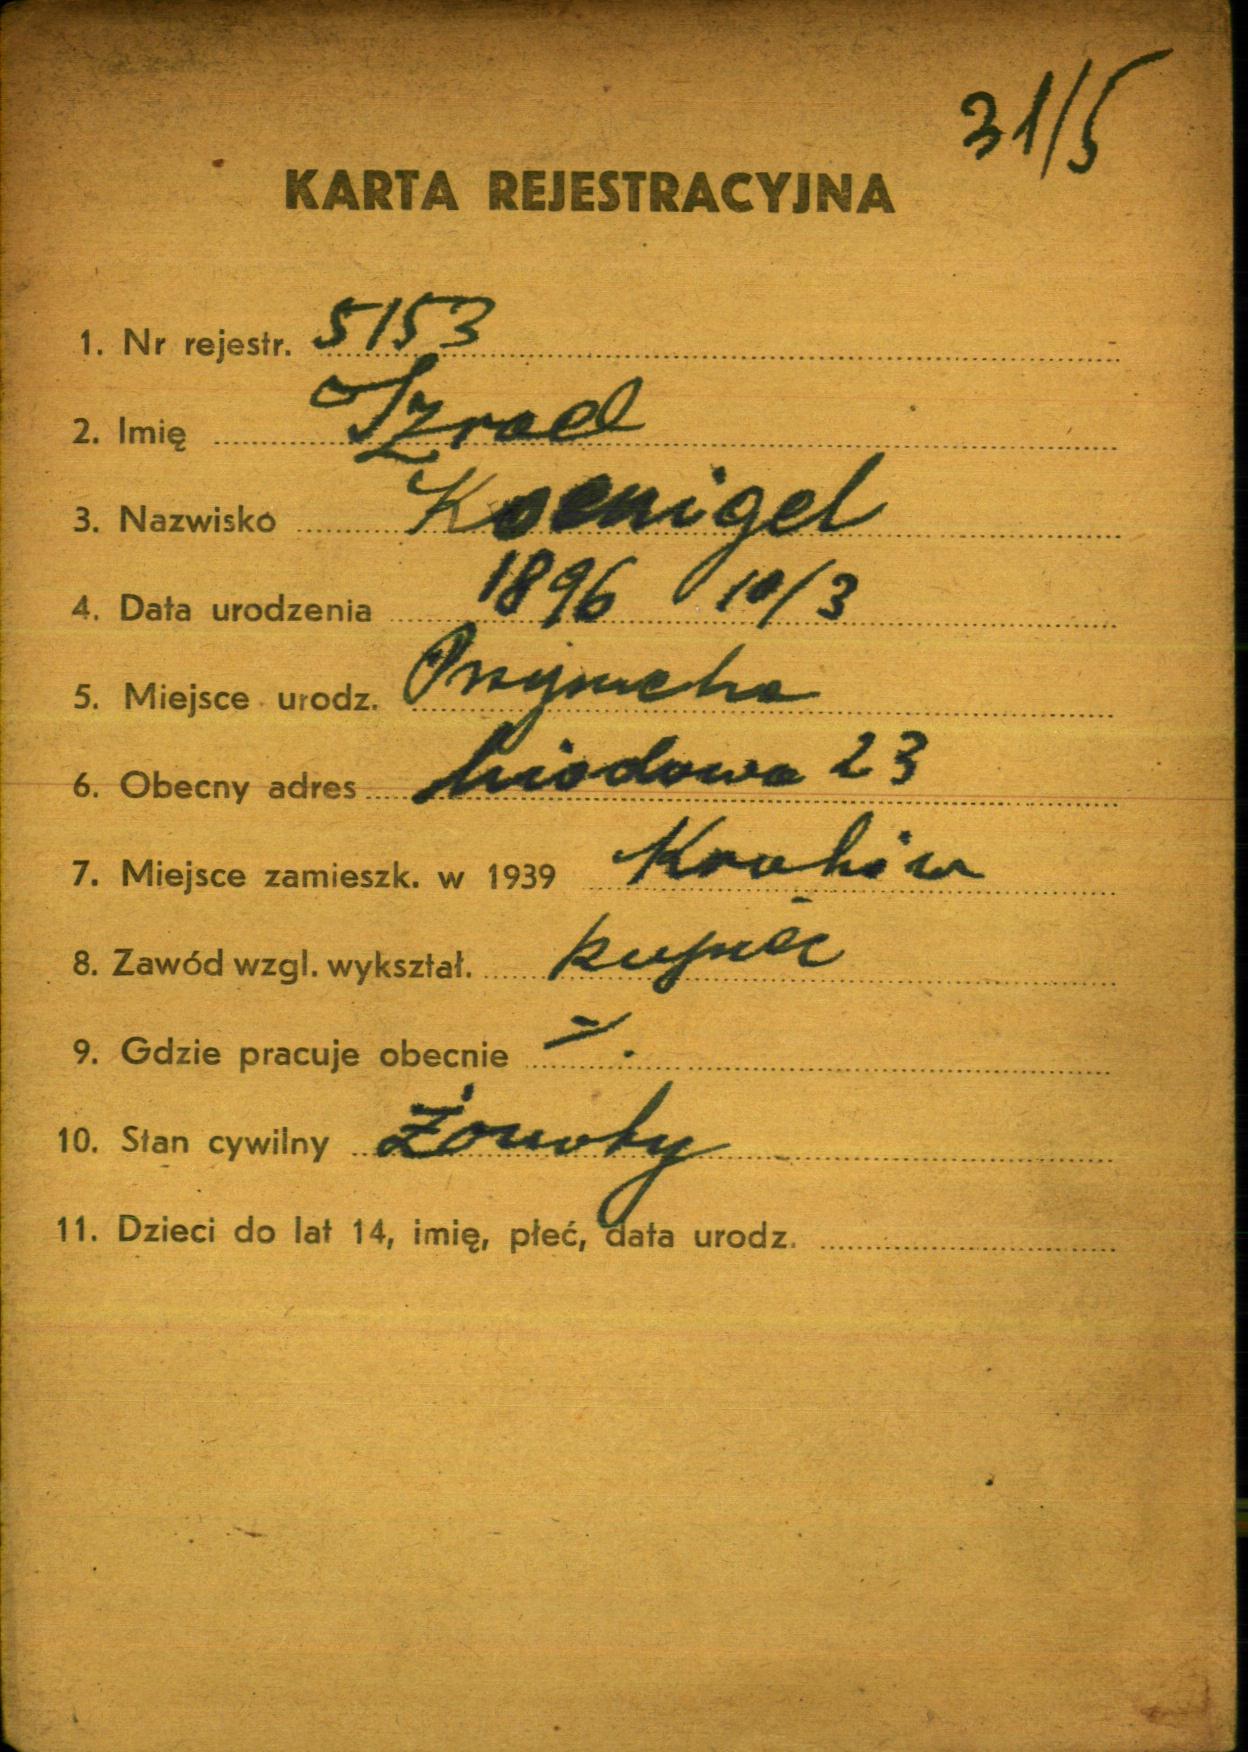 31/5
KARTA REJESTRACYJNA
1. Nr rejestr. 5153
2. Imię Izrael
3. Nazwisko Koenigel
4. Data urodzenia 1896 10/3
5. Miejsce urodz.
6. Obecny adres Miodowa 23
7. Miejsce zamieszk. w 1939 Kraków
8. Zawód wzgl. wykształ. kupiec
9. Gdzie pracuje obecnie –
10. Stan cywilny Żonaty
11. Dzieci do lat 14, imię, płeć, data urodz.